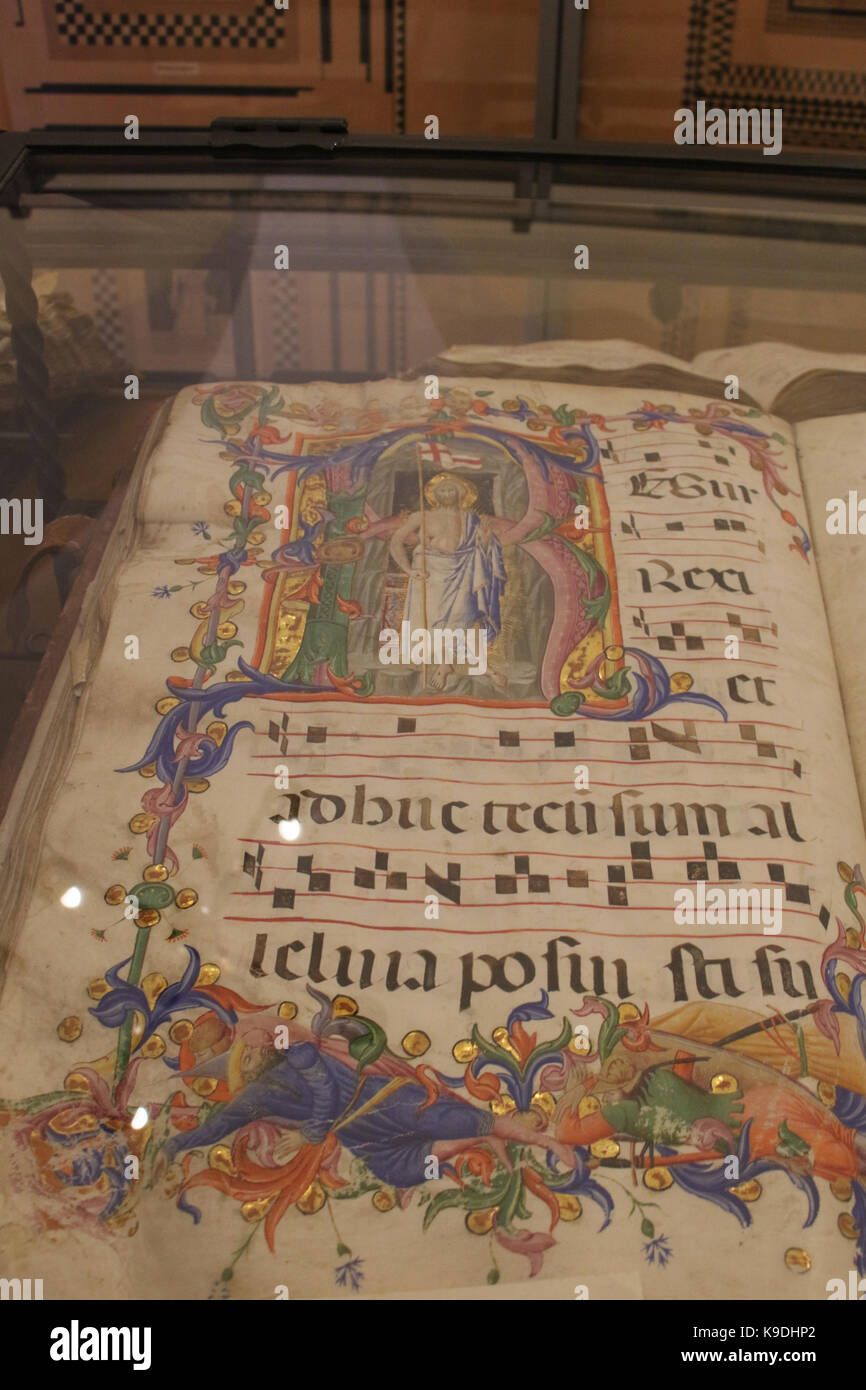 R
ESur
rexi
et
adhuc tecū sum al
leluia posui sti su
alamy
alamy
Image ID: K9DHP2
www.alamy.com